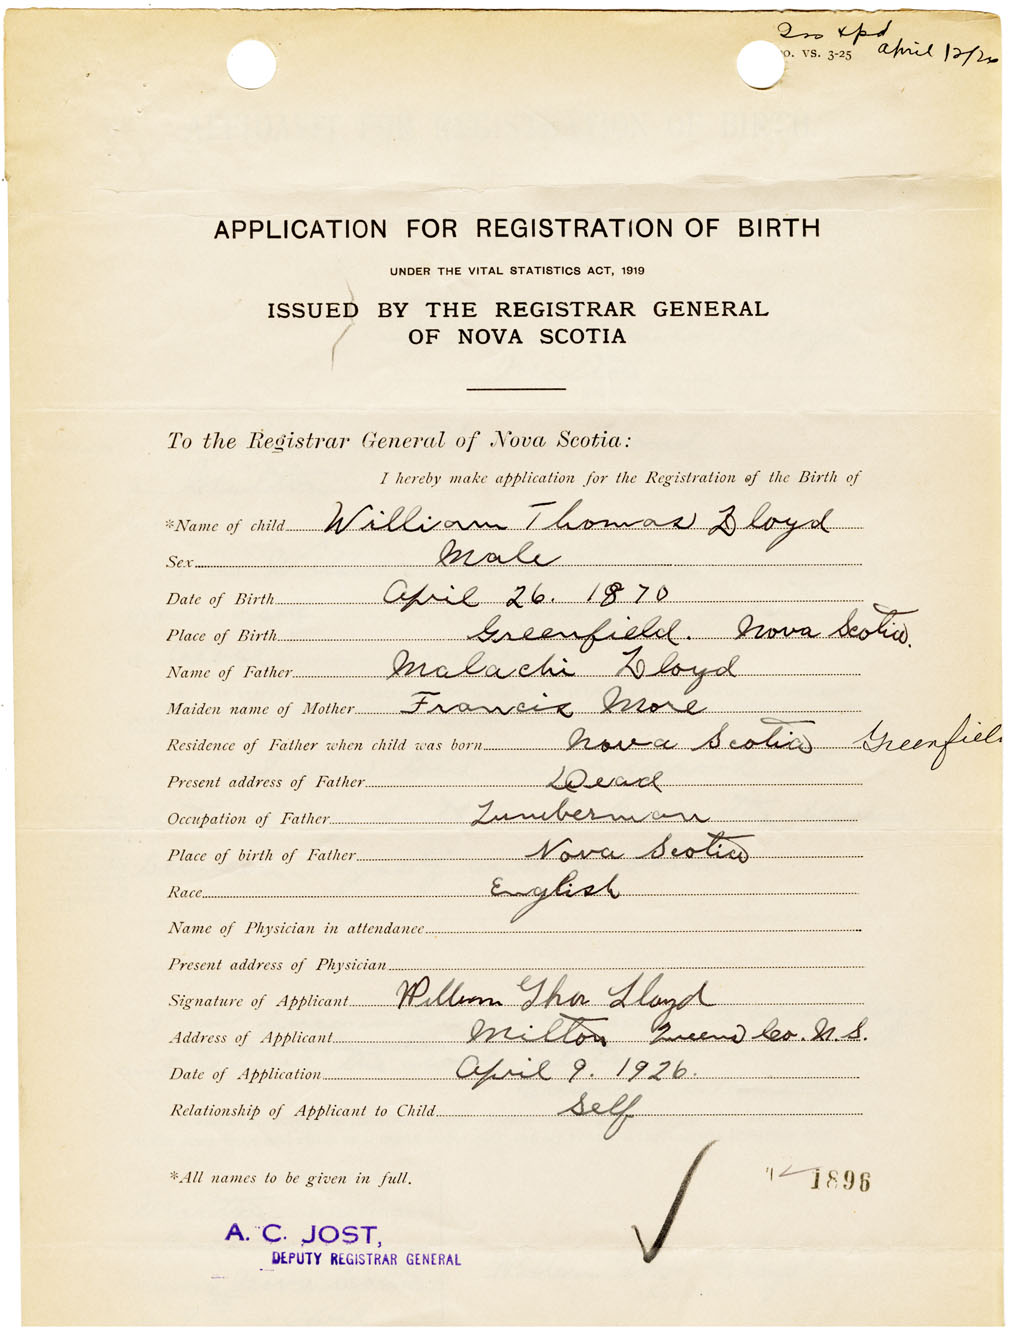 xpd
o. vs. 3-25 April 12/26
APPLICATION FOR REGISTRATION OF BIRTH
UNDER THE VITAL STATISTICS ACT, 1919
ISSUED BY THE REGISTRAR GENERAL
OF NOVA SCOTIA
To the Registrar General of Nova Scotia:
I hereby make application for the Registration of the Birth of
*Name of child William Thomas Lloyd
Sex Male
Date of Birth April 26. 1870
Place of Birth Greenfield. Nova Scotia.
Name of Father Malachi Lloyd
Maiden name of Mother Francis More
Residence of Father when child was born Nova Scotia Greenfiel
Present address of Father Dead
Occupation of Father Lumberman
Place of birth of Father Nova Scotia
Race English
Name of Physician in attendance
Present address of Physician
Signature of Applicant William Thos Lloyd
Address of Applicant Milton Queens Co. N.S.
Date of Application April 9. 1926.
Relationship of Applicant to Child Self
*All names to be given in full.
1896
A. C. JOST,
DEPUTY REGISTRAR GENERAL